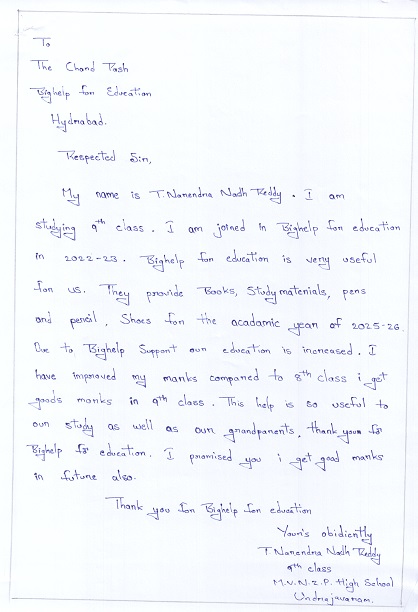 To
The Chand Pash
Bighelp for Education
Hyderabad.
Respected Sir,
My name is T. Narendra Nadh Reddy. I am
studying 9th class. I am joined in Bighelp for education
in 2022-23. Bighelp for education is very useful
for us. They provide Books, Study materials, pens
and pencil, Shoes for the acadamic year of 2025-26.
Due to Bighelp Support our education is increased. I
have improved my marks compared to 8th class i get
goods marks in 9th class. This help is so useful to
our study as well as our grandparents, thank your for
Bighelp for education. I promised you i get good marks
in future also.
Thank you for Bighelp for education
Your's obidiently
T Narendra Nadh Reddy
9th class
M.V.N.Z.P. High School
Undrajavaram.